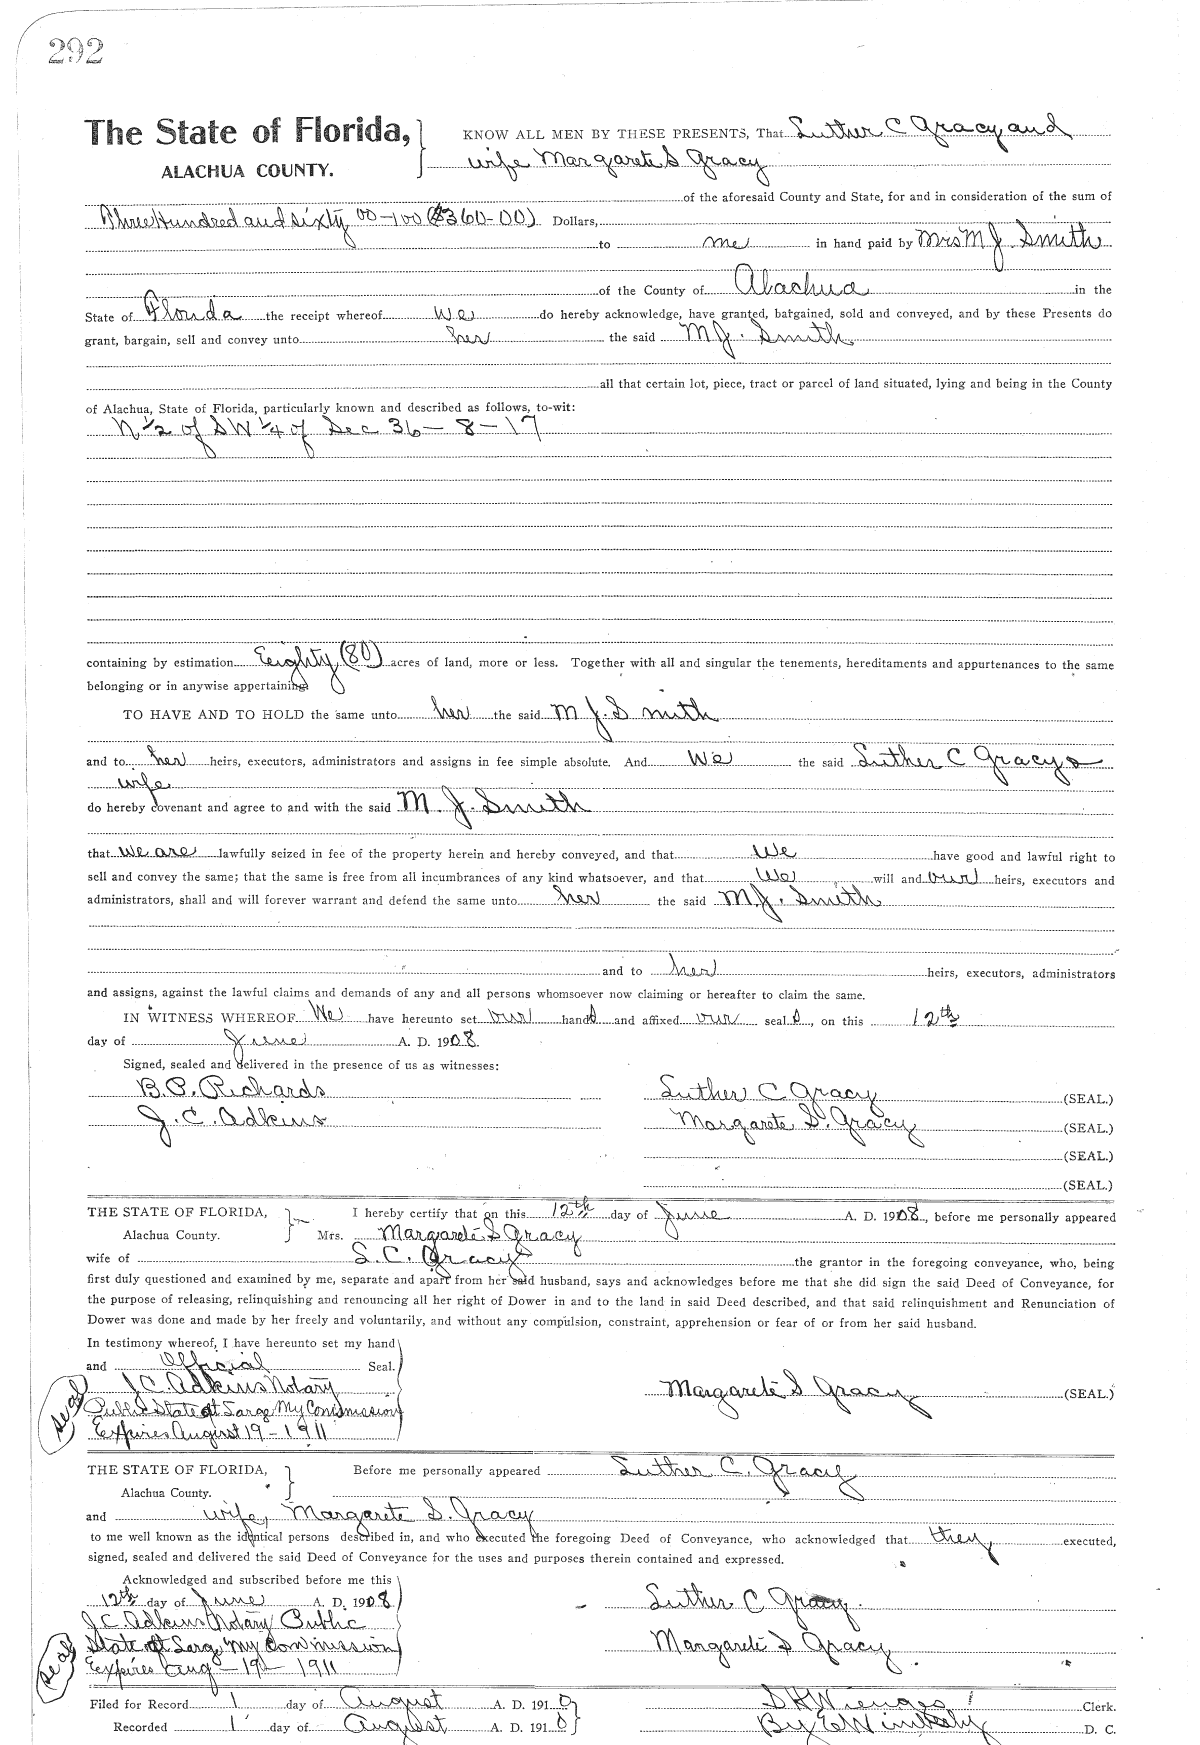 292
The State of Florida, KNOW ALL MEN BY THESE PRESENTS, That Luther C Gracy and
ALACHUA COUNTY. wife Margarete S Gracy
of the aforesaid County and State, for and in consideration of the sum of
Three Hundred and sixty 00-100 ($360-00) Dollars,
to me in hand paid by Mrs M J. Smith
of the County of Alachua in the
State of Florida the receipt whereof we do hereby acknowledge, have granted, batgained, sold and conveyed, and by these Presents do
grant, bargain, sell and convey unto her the said M J. Smith
all that certain lot, piece, tract or parcel of land situated, lying and being in the County
of Alachua, State of Florida, particularly known and described as follows, to-wit:
N 1/2 of SW 1/4 of Sec 36-8-17
containing by estimation Eeighty (80) acres of land, more or less. Together with all and singular the tenements, hereditaments and appurtenances to the same
belonging or in anywise appertaining
TO HAVE AND TO HOLD the same unto her the said M J. Smith
and to her heirs, executors, administrators and assigns in fee simple absolute. And We the said Luther C Gracy &
wife
do hereby covenant and agree to and with the said M. J. Smith
that we are lawfully seized in fee of the property herein and hereby conveyed, and that We have good and lawful right to
sell and convey the same; that the same is free from all incumbrances of any kind whatsoever, and that We will and our heirs, executors and
administrators, shall and will forever warrant and defend the same unto her the said M.J. Smith
and to her heirs, executors, administrators
and assigns, against the lawful claims and demands of any and all persons whomsoever now claiming or hereafter to claim the same.
IN WITNESS WHEREOF We have hereunto set our hands and affixed our seal s, on this 12th
day of June A. D. 1908.
Signed, sealed and delivered in the presence of us as witnesses:
B.P. Richards Luther C Gracy (SEAL.)
J. C. Adkins Margarete S. Gracy (SEAL.)
(SEAL.)
(SEAL.)
THE STATE OF FLORIDA, I hereby certify that on this 12th day of June A. D. 1908, before me personally appeared
Alachua County. Mrs. Margarete S Gracy
wife of L. C. Gracy the grantor in the foregoing conveyance, who, being
first duly questioned and examined by me, separate and apart from her said husband, says and acknowledges before me that she did sign the said Deed of Conveyance, for
the purpose of releasing, relinquishing and renouncing all her right of Dower in and to the land in said Deed described, and that said relinquishment and Renunciation of
Dower was done and made by her freely and voluntarily, and without any compulsion, constraint, apprehension or fear of or from her said husband.
In testimony whereof, I have hereunto set my hand
and Official Seal.
J.C. Adkins Notary Margarete S Gracy (SEAL.)
Seal Public State at Large My Commission
Expires August 19-1911
THE STATE OF FLORIDA, Before me personally appeared Luther C. Gracy
Alachua County.
and wife, Margarete S. Gracy
to me well known as the identical persons described in, and who executed the foregoing Deed of Conveyance, who acknowledged that they executed,
signed, sealed and delivered the said Deed of Conveyance for the uses and purposes therein contained and expressed.
Acknowledged and subscribed before me this
12th day of June A. D. 1908 Luther C Gracy.
J.C. Adkins Notary Public
Seal State at Large My Commission Margarete S Gracy
Expires Aug-19-1911
Filed for Record 1 day of August A. D. 1910 S H Wienges Clerk.
Recorded 1 day of August A. D. 1910 By E Wimberly D. C.